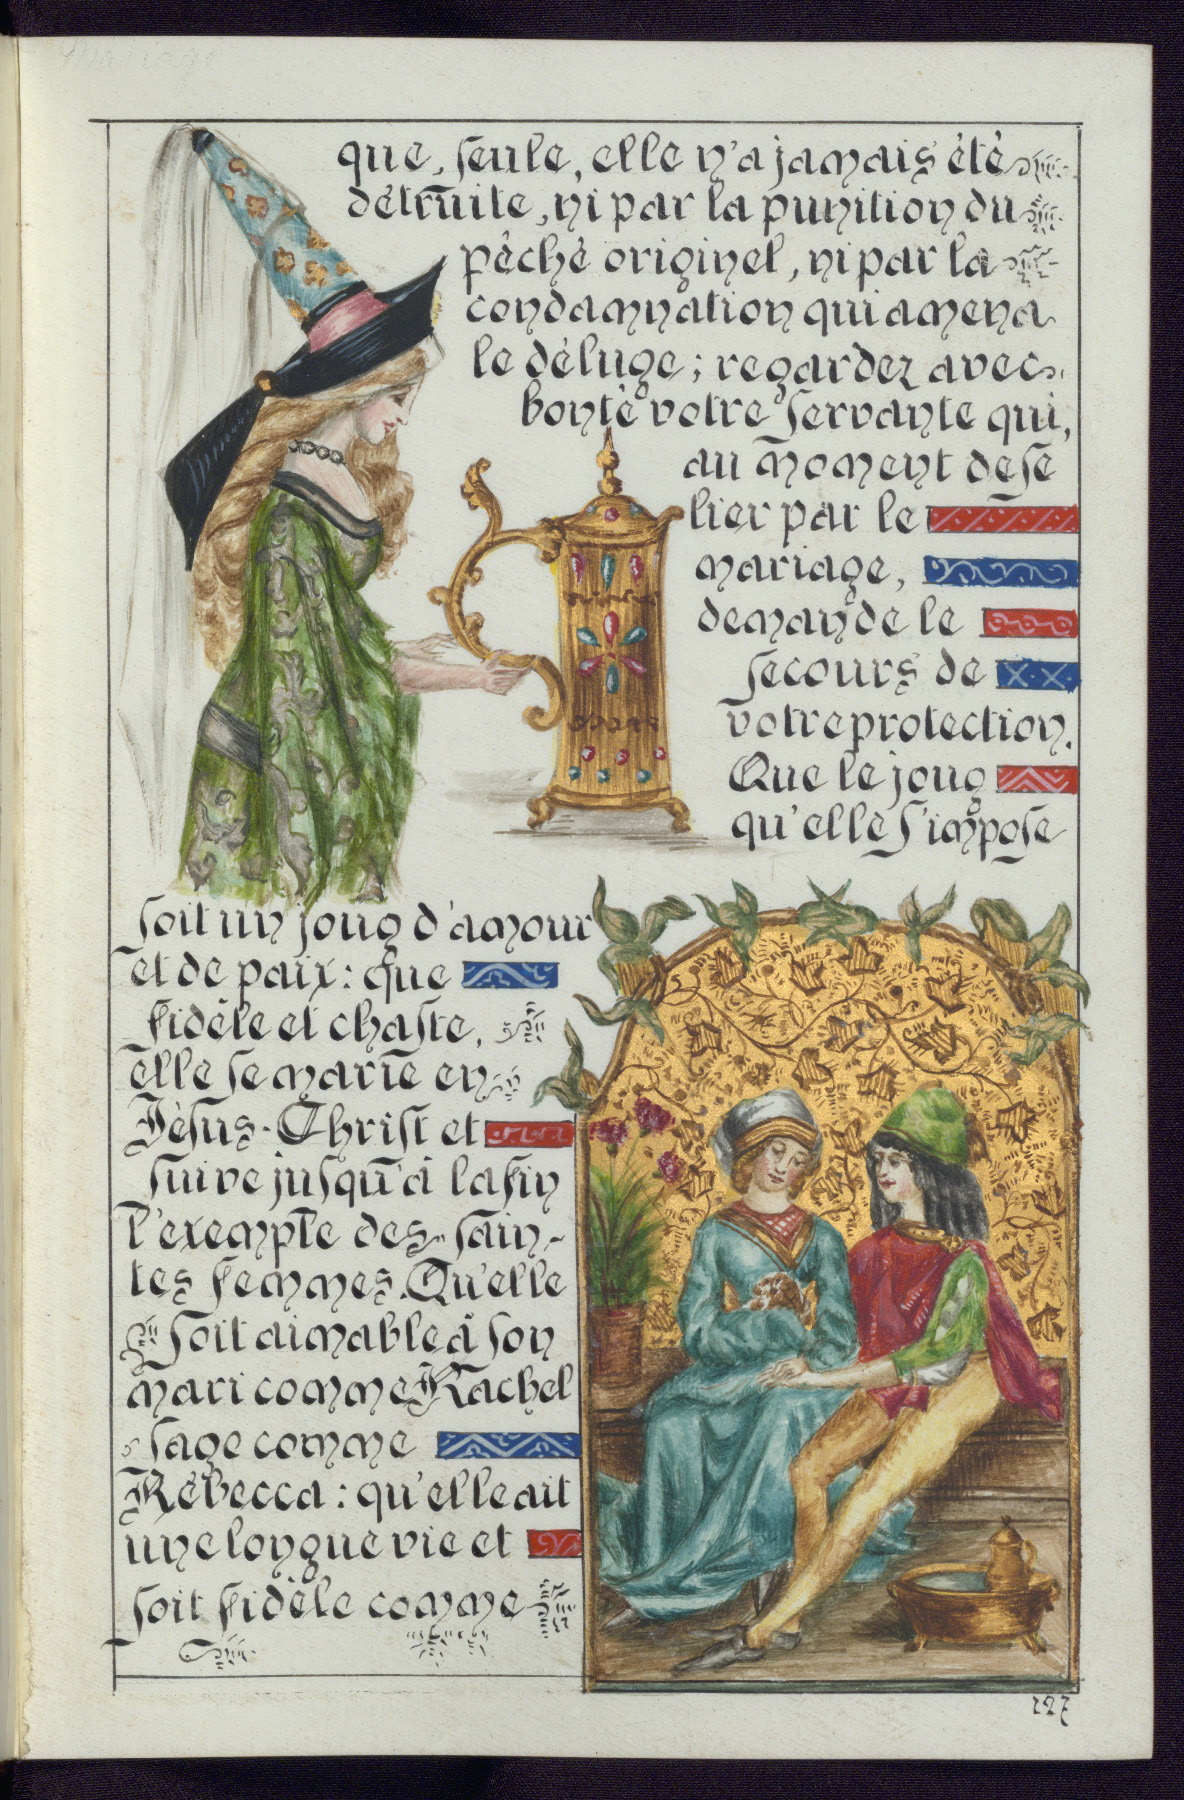 Mariage
que, seule, elle n'a jamais été
détruite, ni par la punition du
péché originel, ni par la
condamnation qui amena
le déluge; regardez avec
bonté votre servante qui,
au moment de se
lier par le
mariage,
demande le
secours de
votre protection.
Que le joug
qu'elle s'impose
soit un joug d'amour
et de paix: que
fidèle et chaste,
elle se marie en
Jésus-Christ et
suive jusqu'à la fin
l'exemple des sain-
tes femmes. Qu'elle
soit aimable à son
mari comme Rachel
sage comme
Rébecca: qu'elle ait
une longue vie et
soit fidèle comme
127